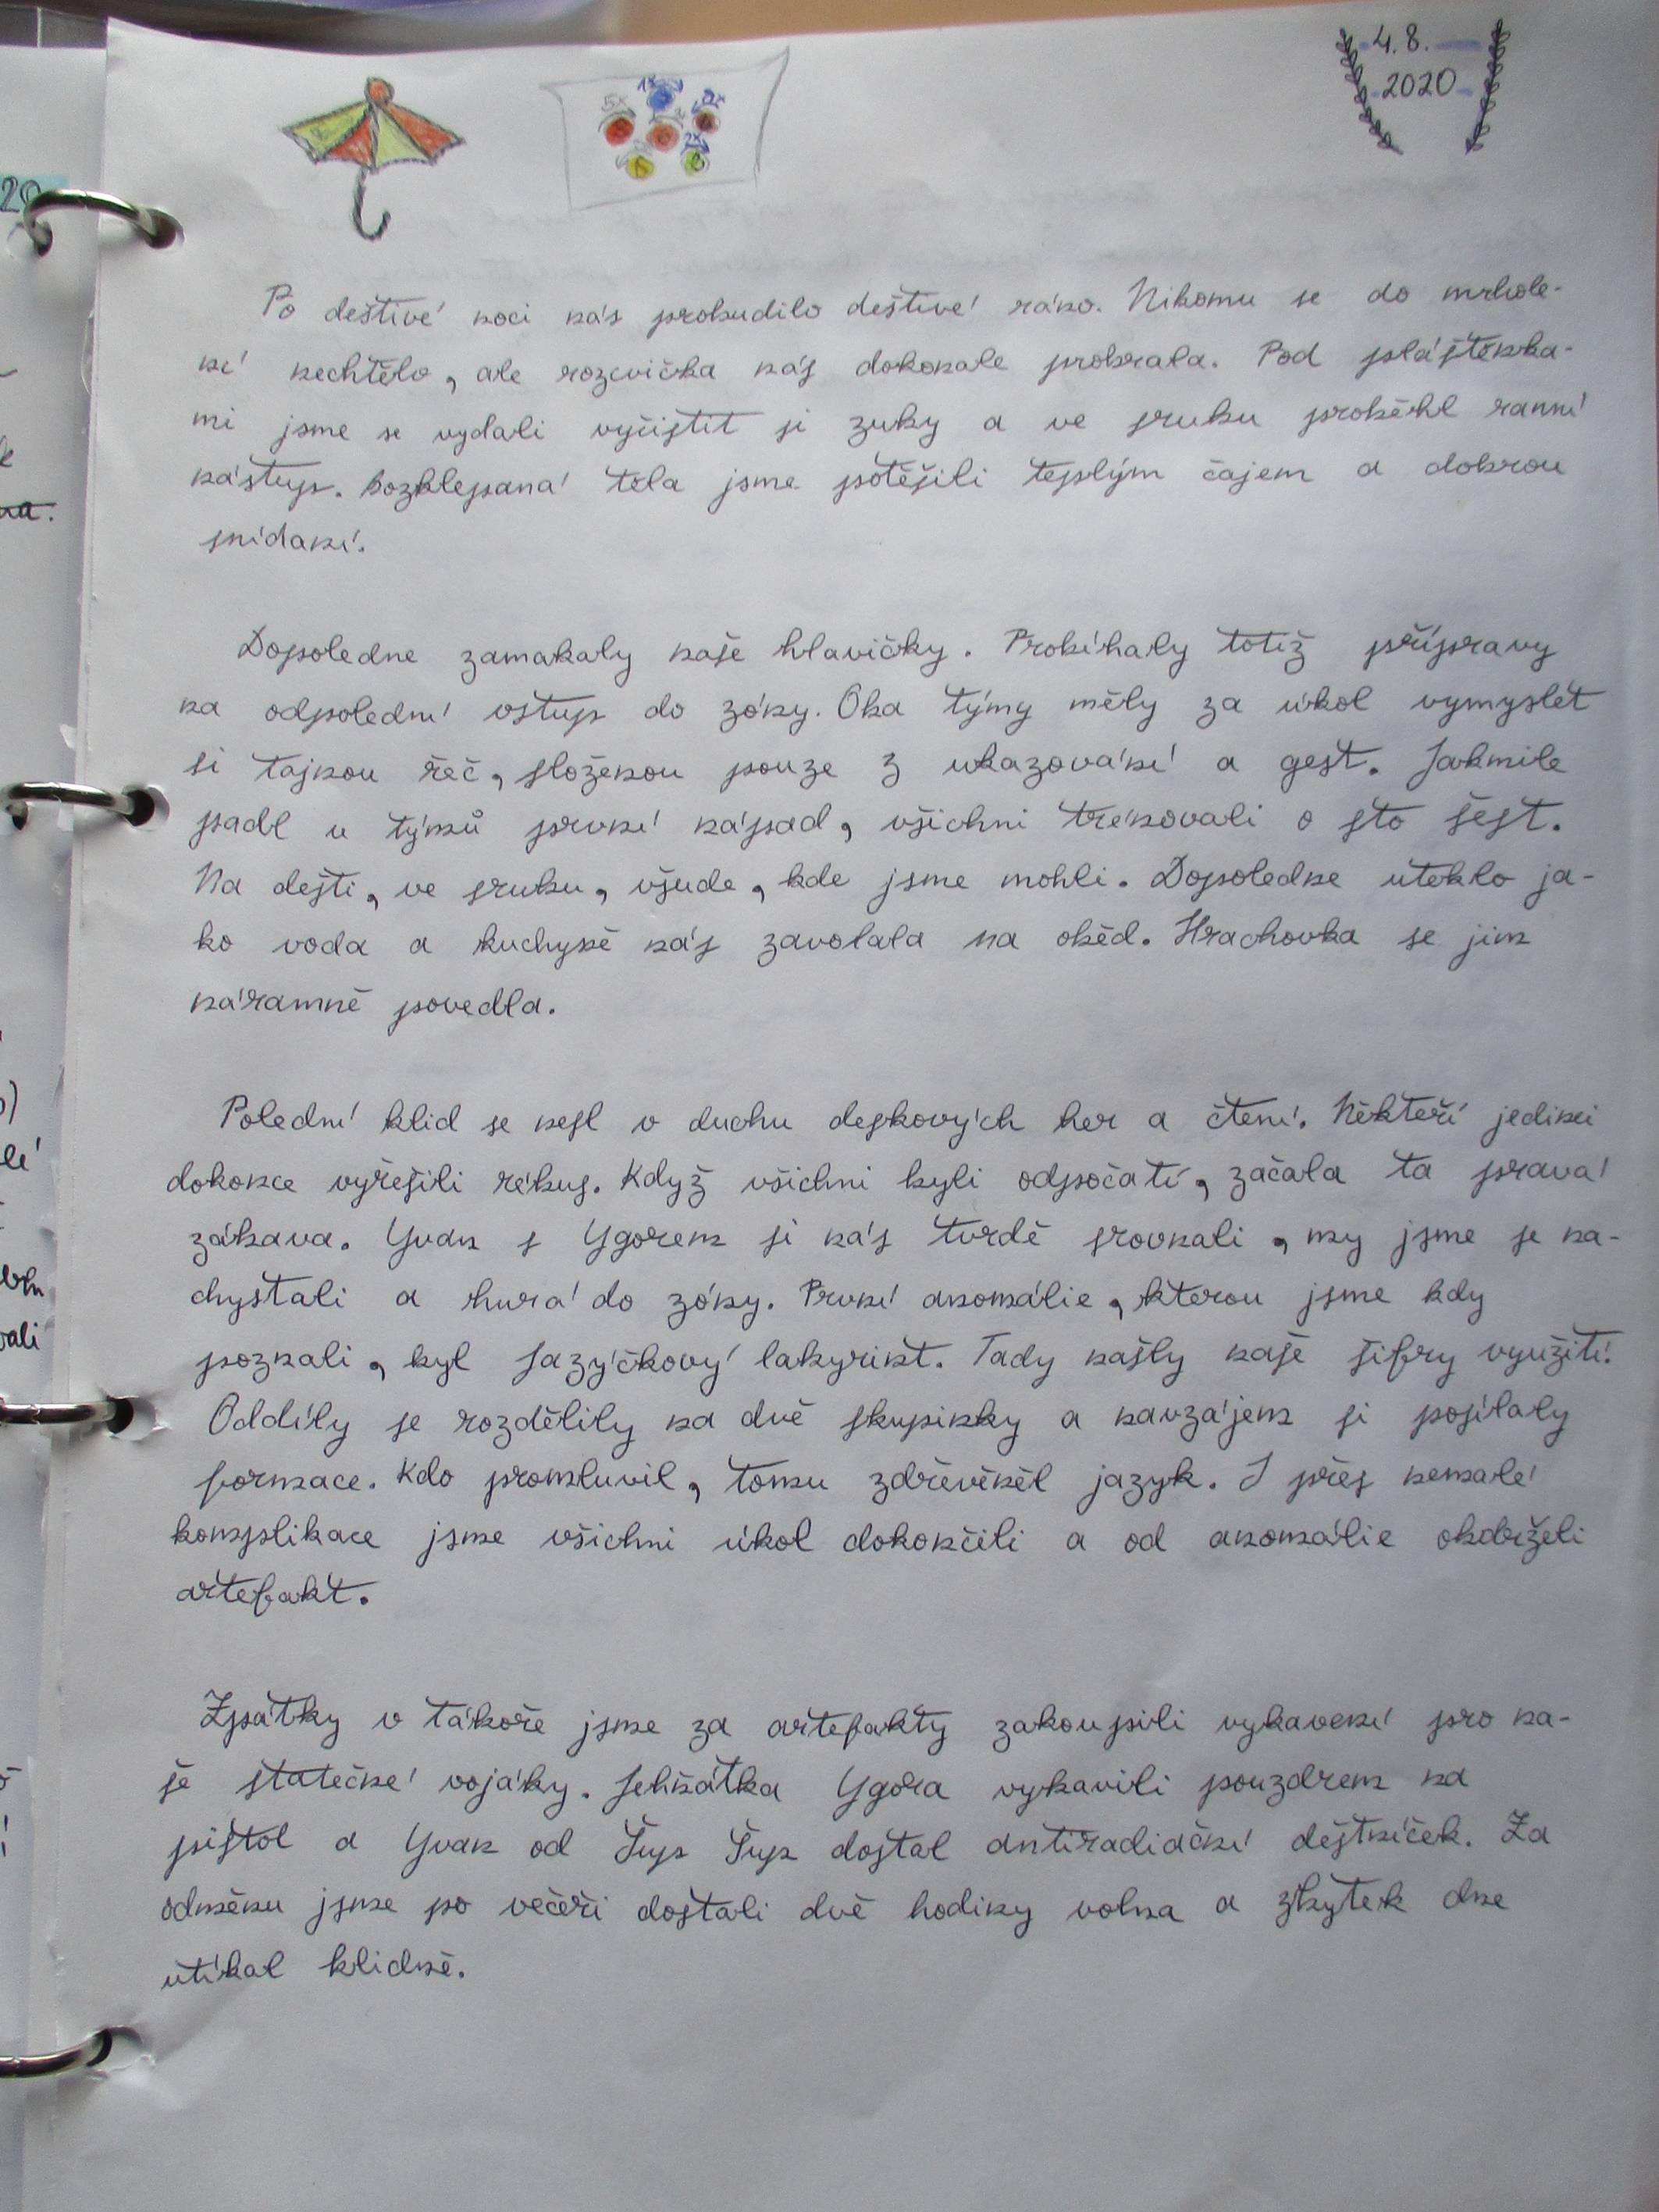 4.8.
2020
5x
1x
2x
2x
Po deštivé noci nás probudilo deštivé ráno. Nikomu se do mrhole-
ní nechtělo, ale rozcvička nás dokonale probrala. Pod pláštěnka-
mi jsme se vydali vyčistit si zuby a ve srubu proběhl ranní
nástup. Rozklepaná těla jsme potěšili teplým čajem a dobrou
snídaní.
Dopoledne zamakaly naše hlavičky. Probíhaly totiž přípravy
na odpolední vstup do zóny. Oba týmy měly za úkol vymyslet
si tajnou řeč, složenou pouze z ukazování a gest. Jakmile
padl u týmů první nápad, všichni trénovali o sto šest.
Na dešti, ve srubu, všude, kde jsme mohli. Dopoledne uteklo ja-
ko voda a kuchyně nás zavolala na oběd. Hrachovka se jim
náramně povedla.
Polední klid se nesl v duchu deskových her a čtení. Někteří jedinci
dokonce vyřešili rébus. Když všichni byli odpočatí, začala ta pravá
zábava. Yvan s Ygorem si nás tvrdě srovnali, my jsme se na-
chystali a hurá do zóny. První anomálie, kterou jsme kdy
poznali, byl Jazýčkový labyrint. Tady našly naše šifry využití.
Oddíly se rozdělily na dvě skupinky a navzájem si posílaly
formace. Kdo promluvil, tomu zdřevěněl jazyk. I přes nemalé
komplikace jsme všichni úkol dokončili a od anomálie obdrželi
artefakt.
Zpátky v táboře jsme za artefakty zakoupili vybavení pro na-
še statečné vojáky. Jehňátka Ygora vybavili pouzdrem na
pistol a Yvan od Ťup Ťup dostal antiradiační deštníček. Za
odměnu jsme po večeři dostali dvě hodiny volna a zbytek dne
utíkal klidně.